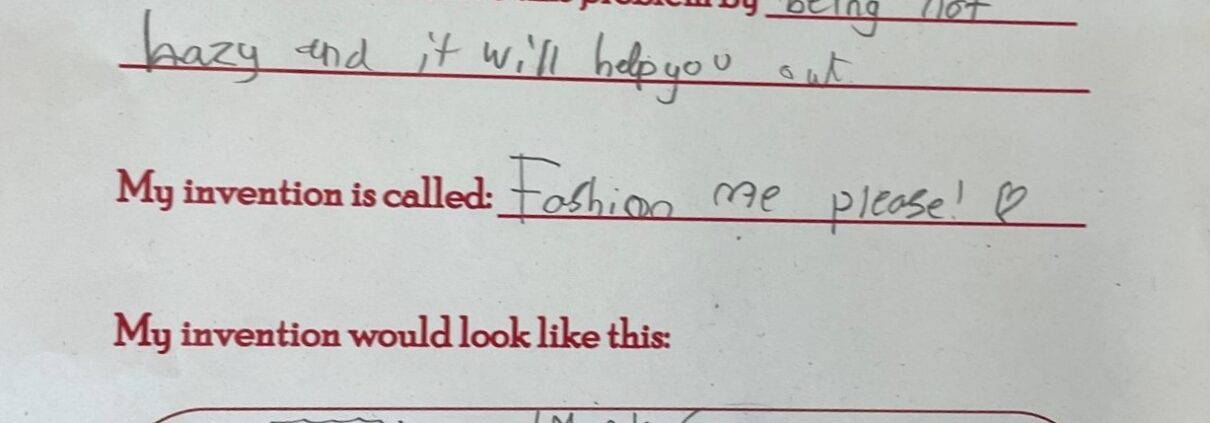 problem by being not
hazy and it will help you out
My invention is called: Fashion me please! ♡
My invention would look like this: